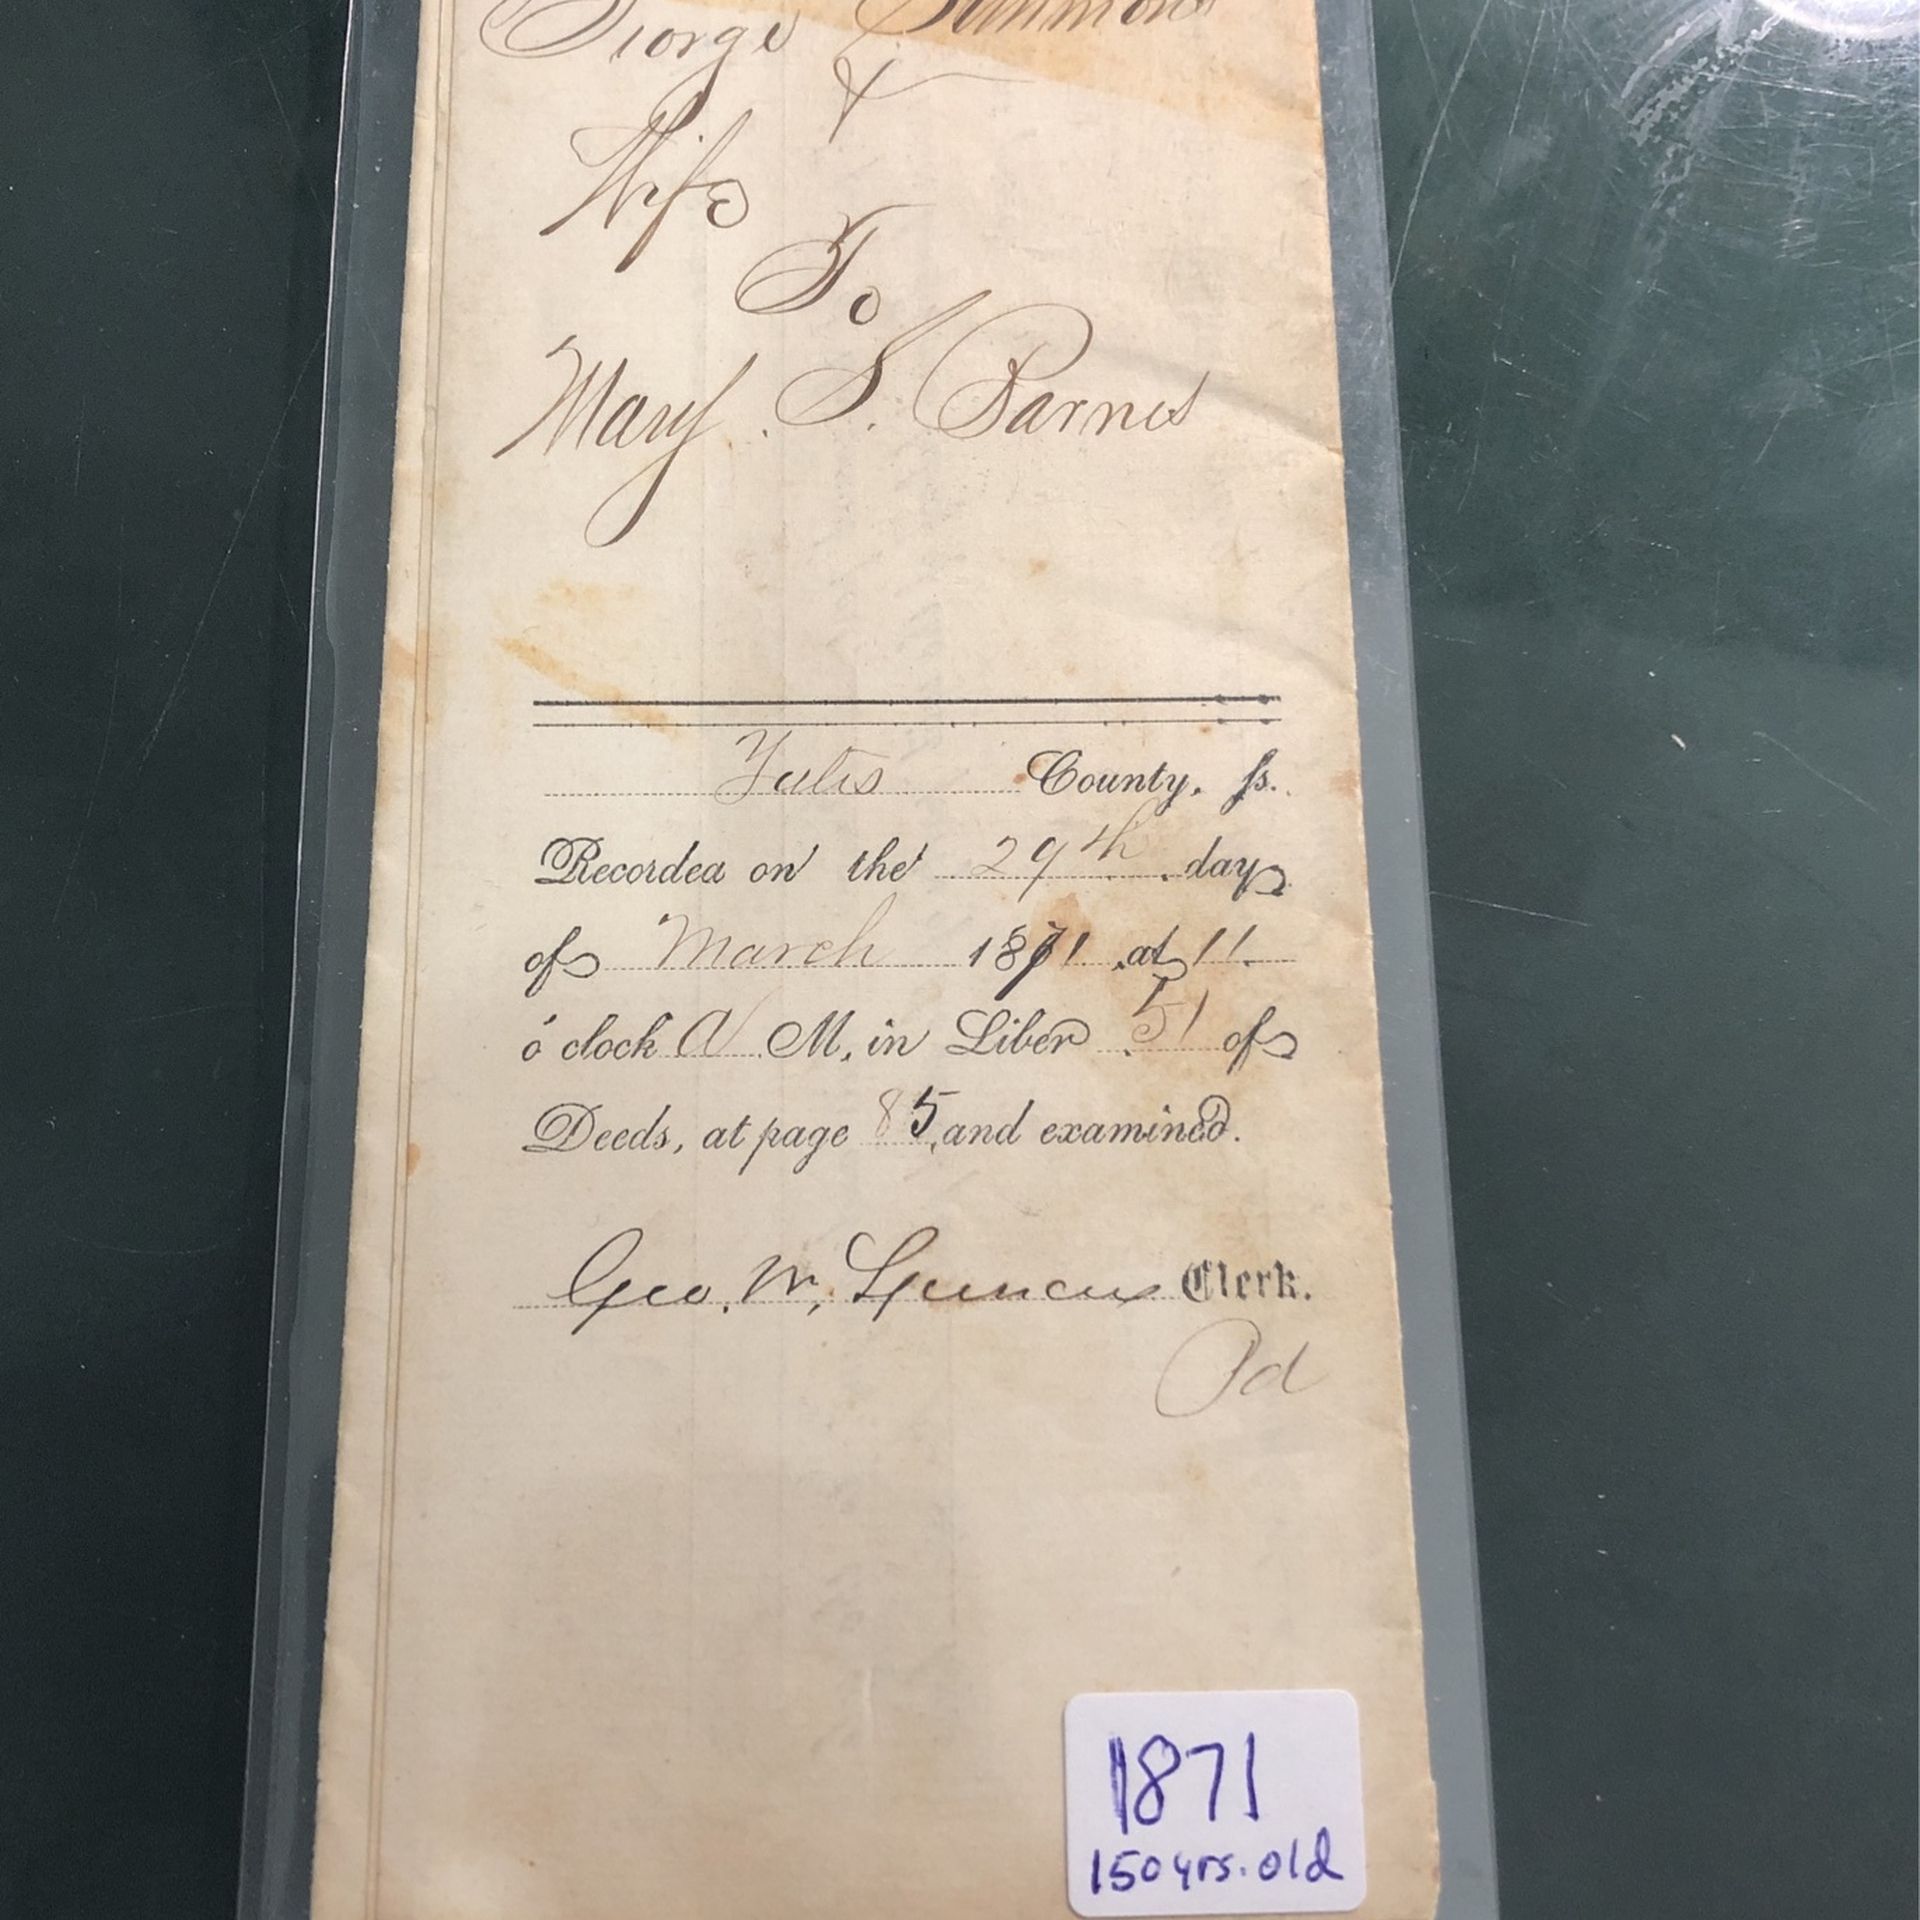 George
&
Wife
To
Mary. S. Barnes
Yates County, ss.
Recorded on the 29th day
of March 1871 at 11
o'clock A M, in Liber 51 of
Deeds, at page 85, and examined.
Geo. W, Spencer Clerk.
Pd
1871
150 yrs. old